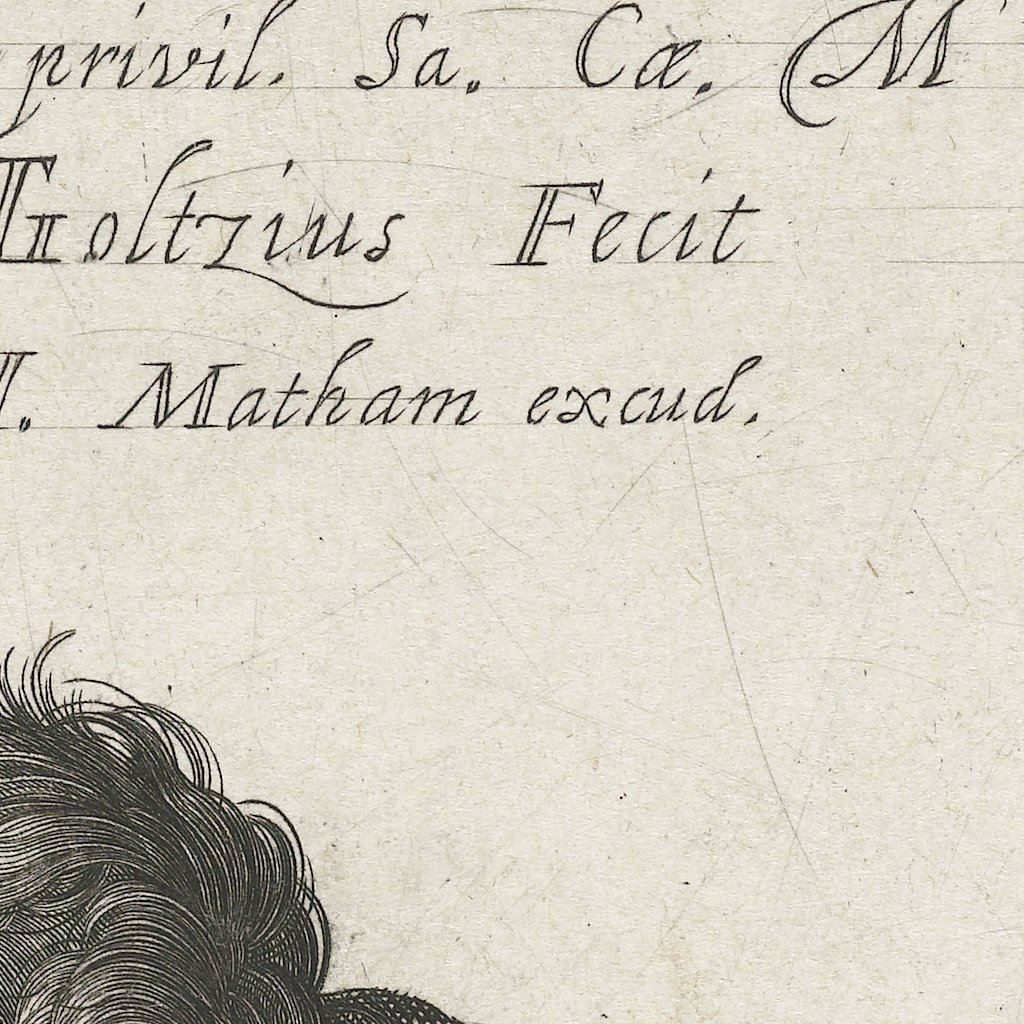 privil. Sa. Cæ. M
Goltzius Fecit
I. Matham excud.